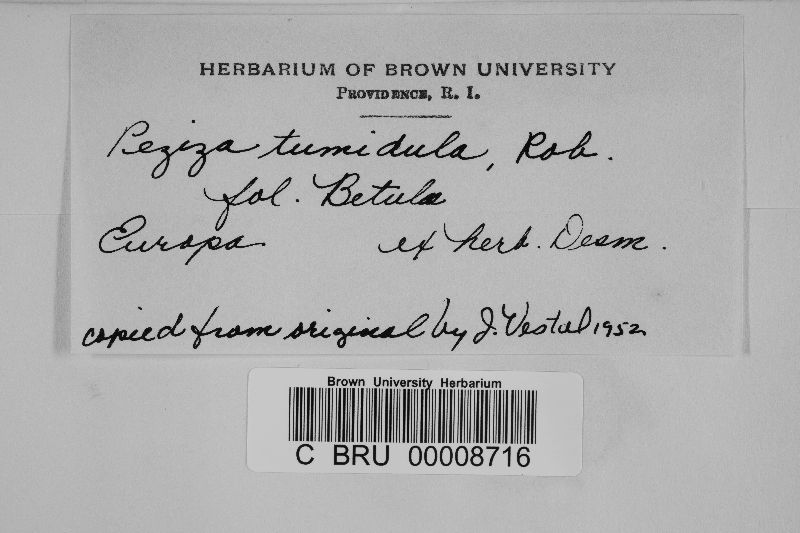 HERBARIUM OF BROWN UNIVERSITY
PROVIDENCE, R. I.
Peziza tumidula, Rob.
fol. Betula
Europa ex herb. Desm.
copied from original by J. Vestal 1952
Brown University Herbarium
C BRU 00008716